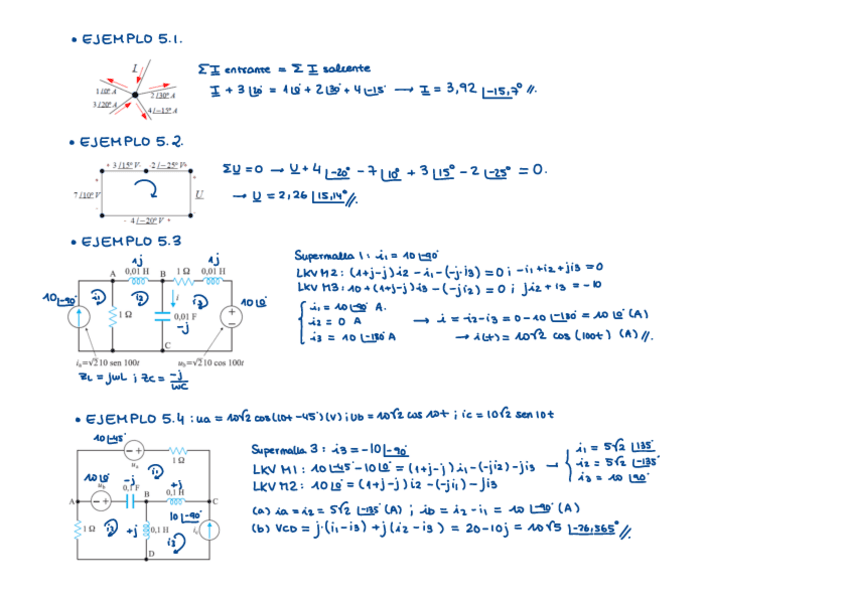 • EJEMPLO 5.1.
I
1/0° A
2/30° A
3/20° A
4/−15° A
ΣI entrante = ΣI saliente
I + 3∠20° = 1∠0° + 2∠30° + 4∠-15° → I = 3,92 ∠-15,7° //.
• EJEMPLO 5.2.
+ 3/15° V - 2/−25° V +
7/10° V
U
- 4/−20° V +
ΣU=0 → U + 4∠-20° - 7∠10° + 3∠15° - 2∠-25° = 0.
→ U = 2,26 ∠15,14° //.
• EJEMPLO 5.3
1j 1j
A 0,01 H B 1 Ω 0,01 H
10∠-90° i1 i2 i i3 10∠0°
1 Ω 0,01 F
-j
C
is=√2 10 sen 100t us=√2 10 cos 100t
ZL = jωL ; ZC = -j/ωC
Supermalla 1: i1 = 10∠-90°
LKV M2: (1+j-j)i2 - i1 - (-j·i3) = 0 ; -i1 + i2 + ji3 = 0
LKV M3: 10 + (1+j-j)i3 - (-ji2) = 0 ; ji2 + i3 = -10
i1 = 10∠-90° A.
i2 = 0 A → i = i2 - i3 = 0 - 10∠-180° = 10∠0° (A)
i3 = 10∠-180° A → i(t) = 10√2 cos (100t) (A) //.
• EJEMPLO 5.4 : ua = 10√2 cos(10t -45°) (V) ; ub = 10√2 cos 10t ; ic = 10√2 sen 10t
10∠-45°
1 Ω
i1
10∠0° -j +j
0,1 F 0,1 H
A B C
10∠-90°
1 Ω i2 +j 0,1 H
i3
D
Supermalla 3: i3 = -10∠-90°
LKV M1: 10∠-45° - 10∠0° = (1+j-j)i1 - (-ji2) - ji3
LKV M2: 10∠0° = (1+j-j)i2 - (-ji1) - ji3
→ i1 = 5√2 ∠135°
i2 = 5√2 ∠-135°
i3 = 10 ∠90°
(a) ia = i2 = 5√2 ∠-135° (A) ; ib = i2 - i1 = 10 ∠-90° (A)
(b) VCD = j·(i1-i3) + j(i2-i3) = 20-10j = 10√5 ∠-26,565° //.